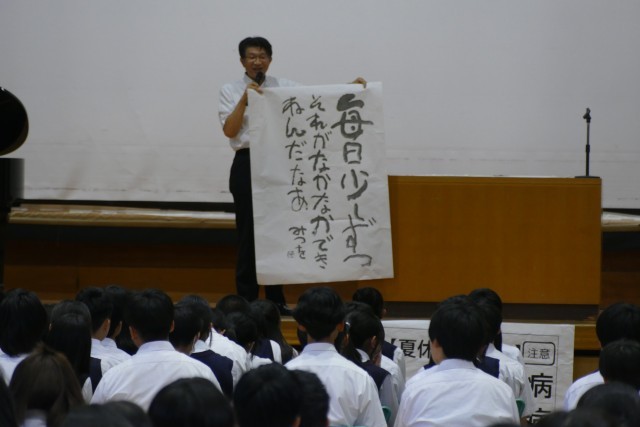 毎日少しずつ
それがなかなかでき
ねんだなあ
みつを
【夏休
注意
病